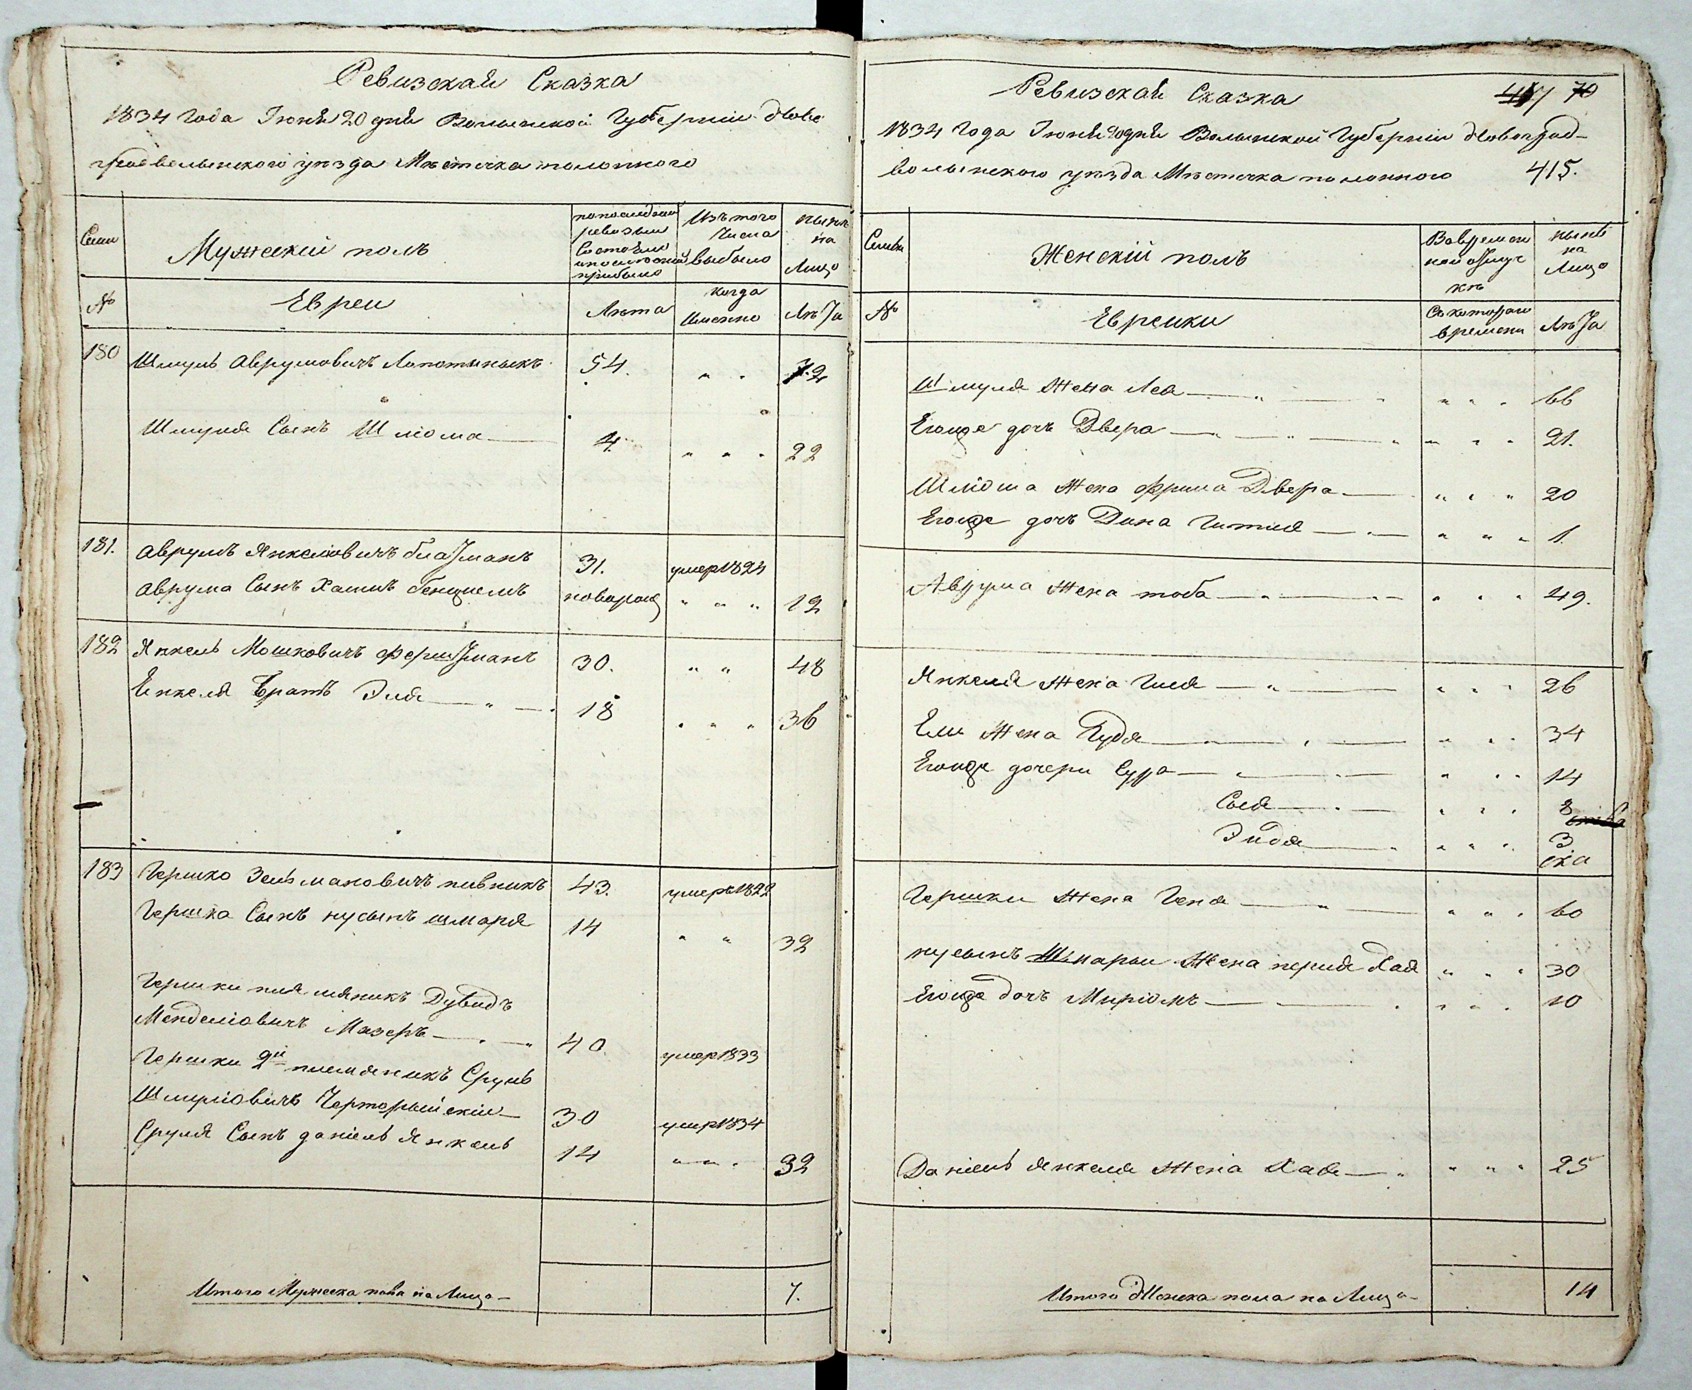 Ревизская Сказка
1834 года Іюня 20 дня Волынской Губерніи Ново
градволынского уѣзда Мѣстечка полонного
Семьи
Мужескій полъ
по последней
ревизіи
Состояло
и после оной
прибыло
Изъ того
Числа
выбыло
нынѣ
на
Лицо
№
Евреи
Лѣта
когда
Именно
Лѣта
180 Шмуль Аврумовичъ 54. 72
Шмуля Сынъ Шліома 4. 22
181. Аврумъ Янкеліовичъ 31. умер 1824
Аврума Сынъ Хаимъ новорож 12
182 Янкель Мошковичъ 30. 48
Енкеля Братъ Эля 18 36
183 Гершко Зельмановичъ пивникъ 43. умеръ 1822
Гершка Сынъ нусынъ шмаря 14 32
Гершки племяникъ Дувидъ
Менделіовичъ Мазеръ 40. умер 1833
Гершки 2й племяникъ Сруль
Шмуліовичъ Черторыйскій 30 умер 1834
Сруля Сынъ даніель Янкель 14 32
Итого Мужеска пола на Лицо 7.
Ревизская Сказка 70
1834 года Іюня 20 дня Волынской Губерніи Новоград-
волынского уѣзда Мѣстечка полонного 415.
Семьи
Женскій полъ
Во времен
ной отлуч
кѣ
нынѣ
на
Лицо
№
Еврейки
Съ которого
времени
Лѣта
Шмуля Жена Лея 66
Егоже дочь Двера 21.
Шліома Жена Фрима Двера 20
Егоже дочь Дина Гитля 1.
Аврума Жена тоба 49.
Янкеля Жена Гиля 26
Ели Жена Худя 34
Егоже дочери Сура 14
Сося 8
Эйдя 3
Гершки Жена Геня 60
нусынъ Шмарыи Жена перля Хая 30
Егоже дочь Миріомъ 10
Даніель Янкеля Жена Хая 25
Итого Женска пола на Лицо 14